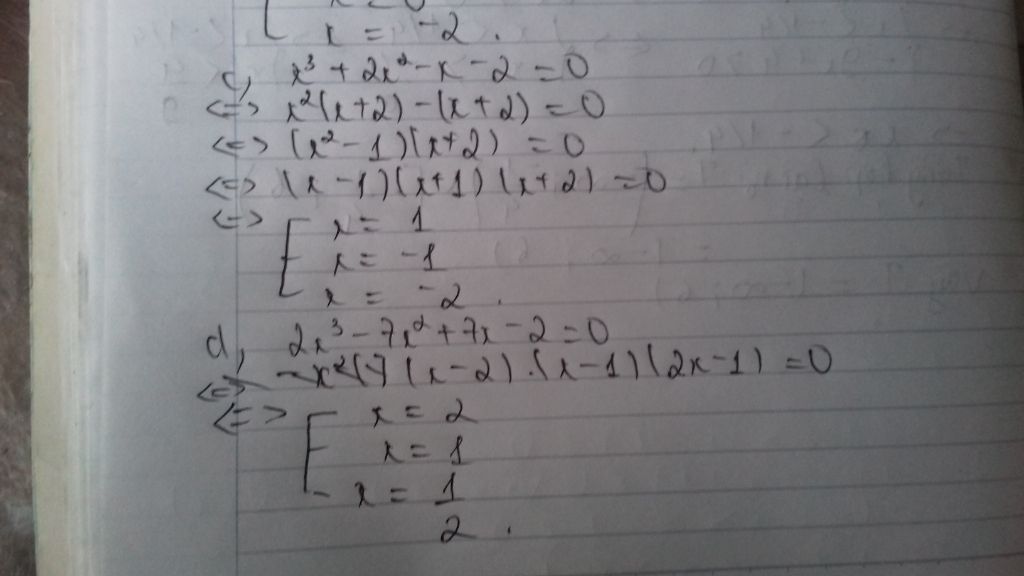 x = -2.
c, x³ + 2x² - x - 2 = 0
<=> x²(x+2) - (x+2) = 0
<=> (x² - 1)(x+2) = 0
<=> (x - 1)(x+1)(x+2) = 0
<=> [ x = 1
x = -1
x = -2.
d, 2x³ - 7x² + 7x - 2 = 0
<=> (x-2).(x-1)(2x-1) = 0
<=> [ x = 2
x = 1
x = 1
2.